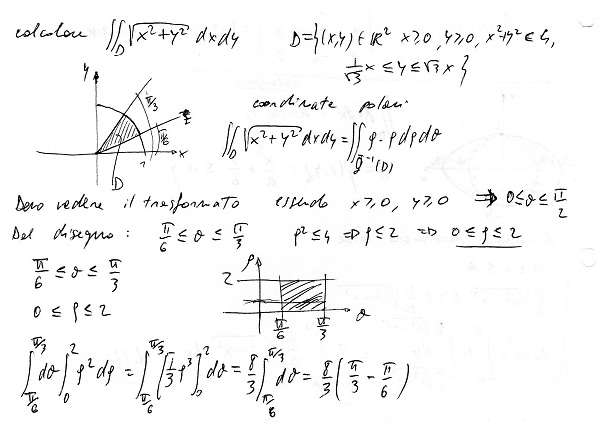 calcolare ∬_D √(x²+y²) dx dy    D = {(x,y) ∈ ℝ² x≥0, y≥0, x²+y² ≤ 4,
1/√3 x ≤ y ≤ √3 x}
y
π/3
π/6
x
D
coordinate polari
∬_D √(x²+y²) dx dy = ∬_{Φ⁻¹(D)} ρ·ρ dρ dθ
Devo vedere il trasformato essendo x≥0, y≥0 ⇒ 0≤θ≤π/2
Dal disegno: π/6 ≤ θ ≤ π/3    ρ² ≤ 4 ⇒ ρ ≤ 2 ⇒ 0 ≤ ρ ≤ 2
π/6 ≤ θ ≤ π/3
0 ≤ ρ ≤ 2
ρ
2
π/6 π/3 θ
∫_{π/6}^{π/3} dθ ∫_0^2 ρ² dρ = ∫_{π/6}^{π/3} [1/3 ρ³]_0^2 dθ = 8/3 ∫_{π/6}^{π/3} dθ = 8/3 (π/3 − π/6)